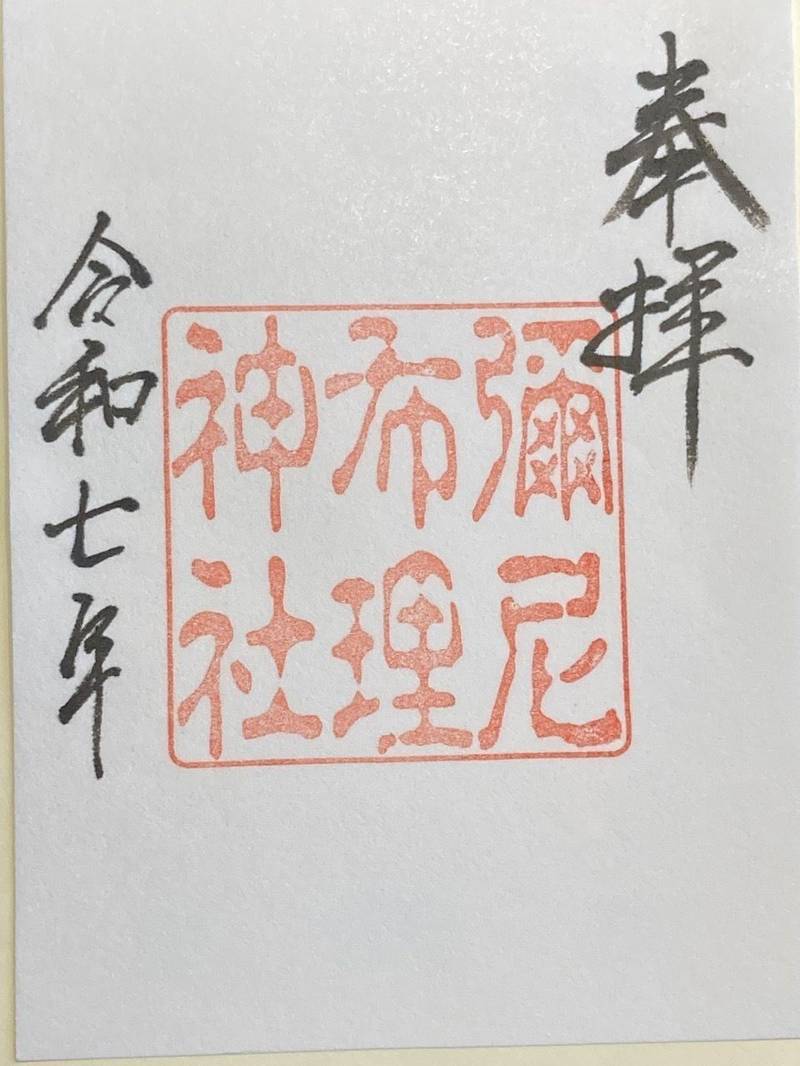 奉拝
彌尼
布理
神社
令和七年